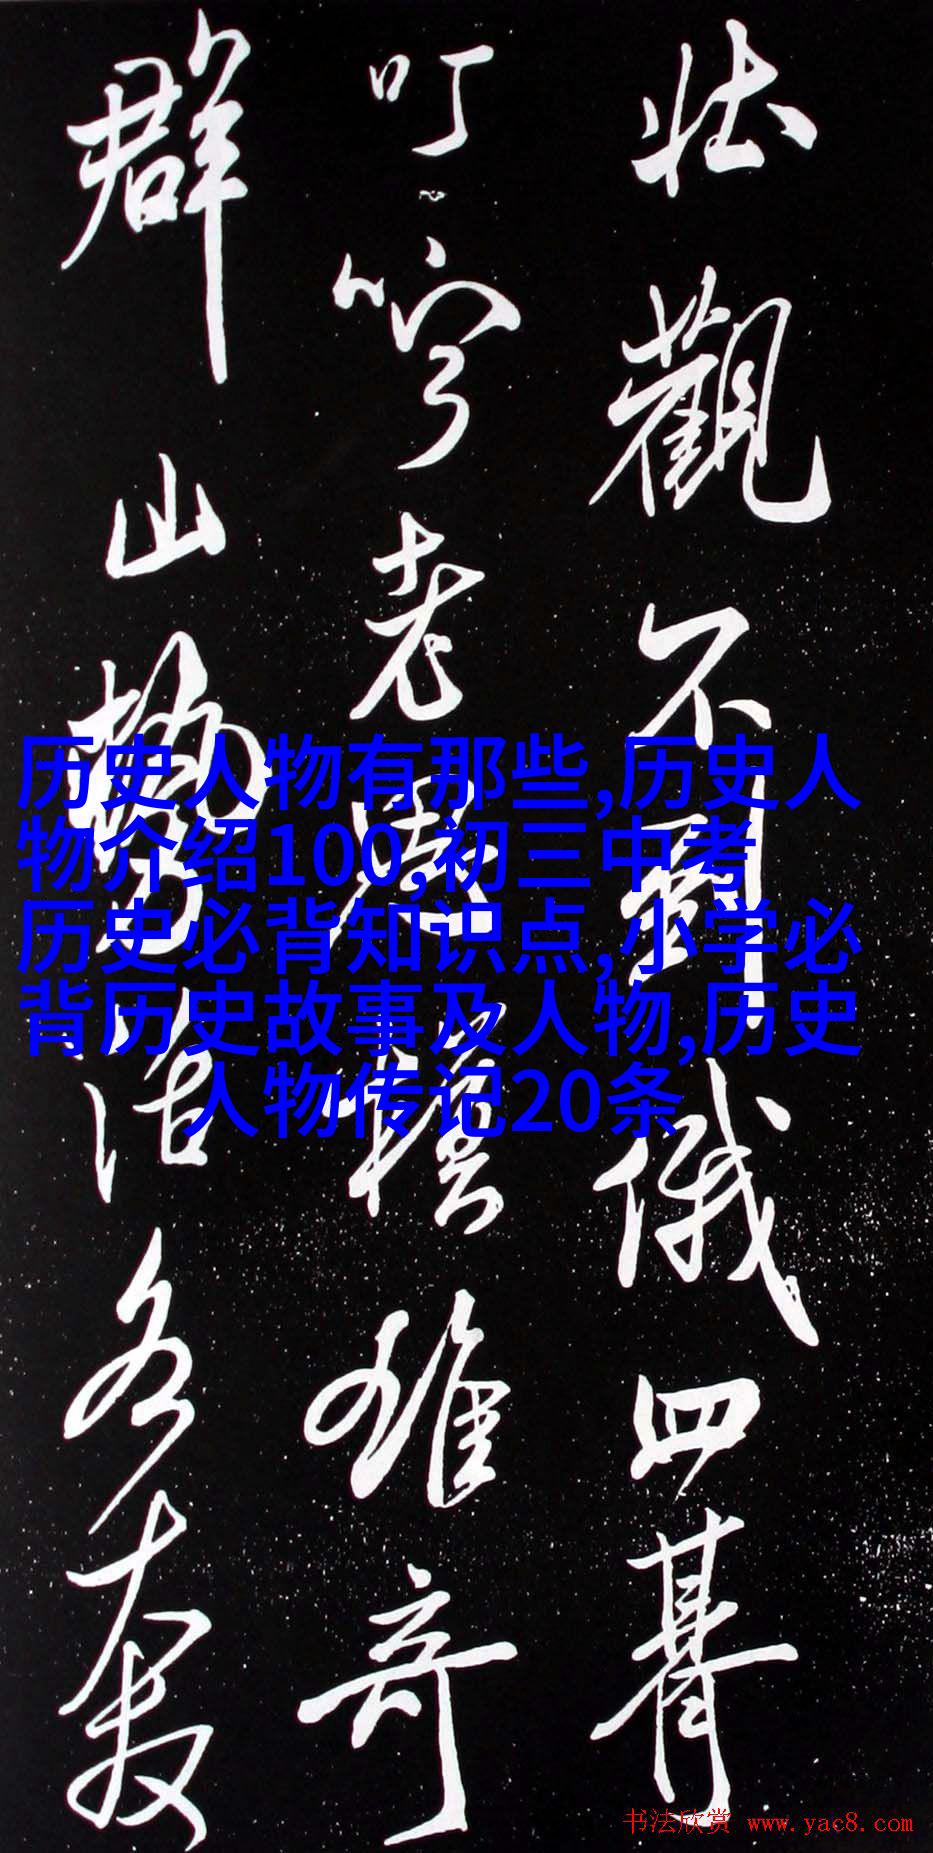 壮觀不到俄四
叮嚀老雖奇
群山勢活各
历史人物有那些,历史人
物介绍100,初三中考
历史必背知识点,小学必
背历史故事及人物,历史
人物传记20条
书法欣赏 www.yac8.com